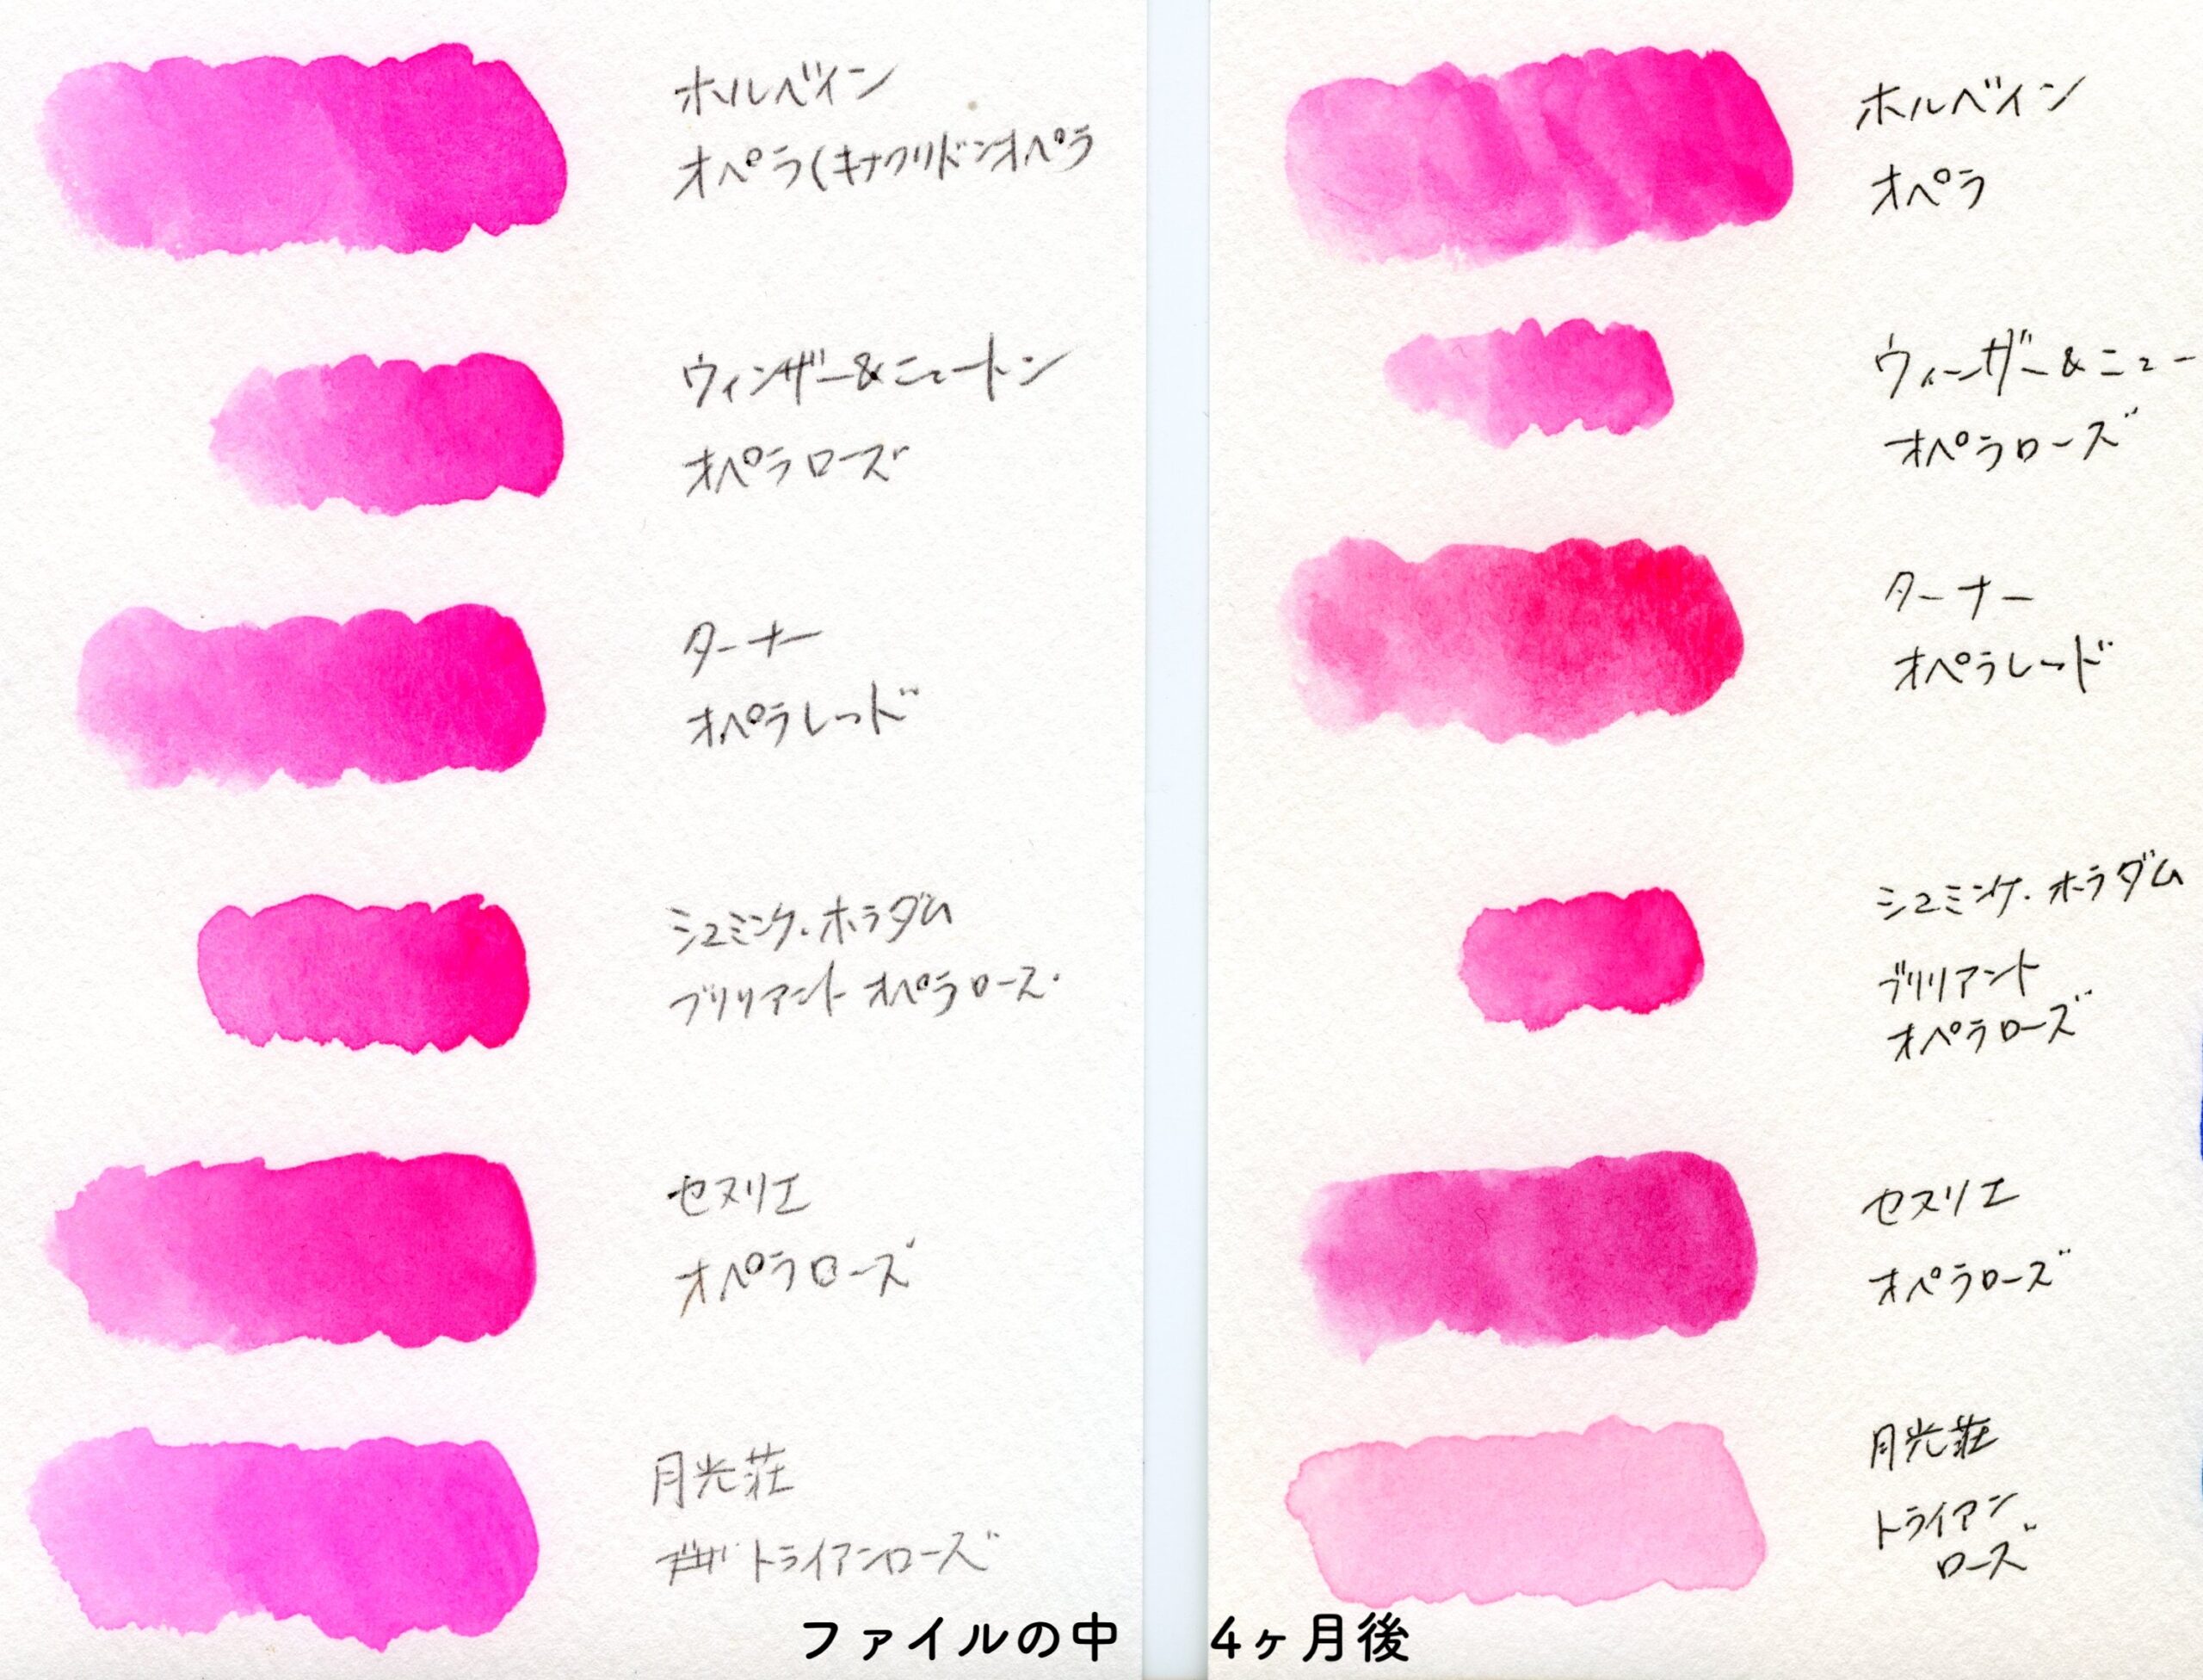 ホルベイン
オペラ(キナクリドンオペラ
ウィンザー&ニュートン
オペラローズ
ターナー
オペラレッド
シュミンケ・ホラダム
ブリリアント オペラローズ
セヌリエ
オペラローズ
月光荘
トライアンローズ
ファイルの中
ホルベイン
オペラ
ウィーンザー&ニュー
オペラローズ
ターナー
オペラレッド
シュミンケ・ホラダム
ブリリアント
オペラローズ
セヌリエ
オペラローズ
月光荘
トライアン
ローズ
4ヶ月後